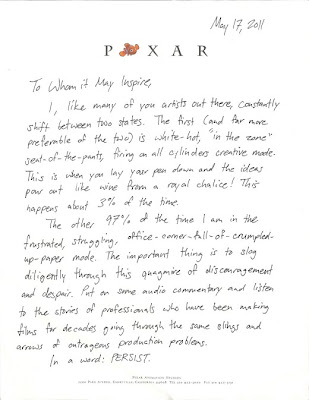 May 17, 2011
P XAR
To Whom it May Inspire,
I, like many of you artists out there, constantly
shift between two states. The first (and far more
preferable of the two) is white-hot, "in the zone"
seat-of-the-pants, firing on all cylinders creative mode.
This is when you lay your pen down and the ideas
pour out like wine from a royal chalice! This
happens about 3% of the time.
The other 97% of the time I am in the
frustrated, struggling, office-corner-full-of-crumpled-
up-paper mode. The important thing is to slog
diligently through this quagmire of discouragement
and despair. Put on some audio commentary and listen
to the stories of professionals who have been making
films for decades going through the same slings and
arrows of outrageous production problems.
In a word: PERSIST.
PIXAR ANIMATION STUDIOS
1200 PARK AVENUE, EMERYVILLE, CALIFORNIA 94608